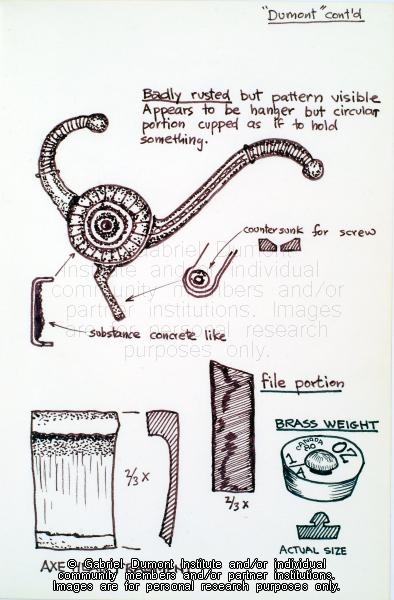 "Dumont" cont'd
Badly rusted but pattern visible
Appears to be hanger but circular
portion cupped as if to hold
something.
countersunk for screw
© Gabriel Dumont
Institute and/or individual
community members and/or
partner institutions. Images
are for personal research
purposes only.
substance concrete like
file portion
2/3 x
2/3 x
BRASS WEIGHT
CANADA
80
1 OZ
A
ACTUAL SIZE
AXE
© Gabriel Dumont Institute and/or individual
community members and/or partner institutions.
Images are for personal research purposes only.